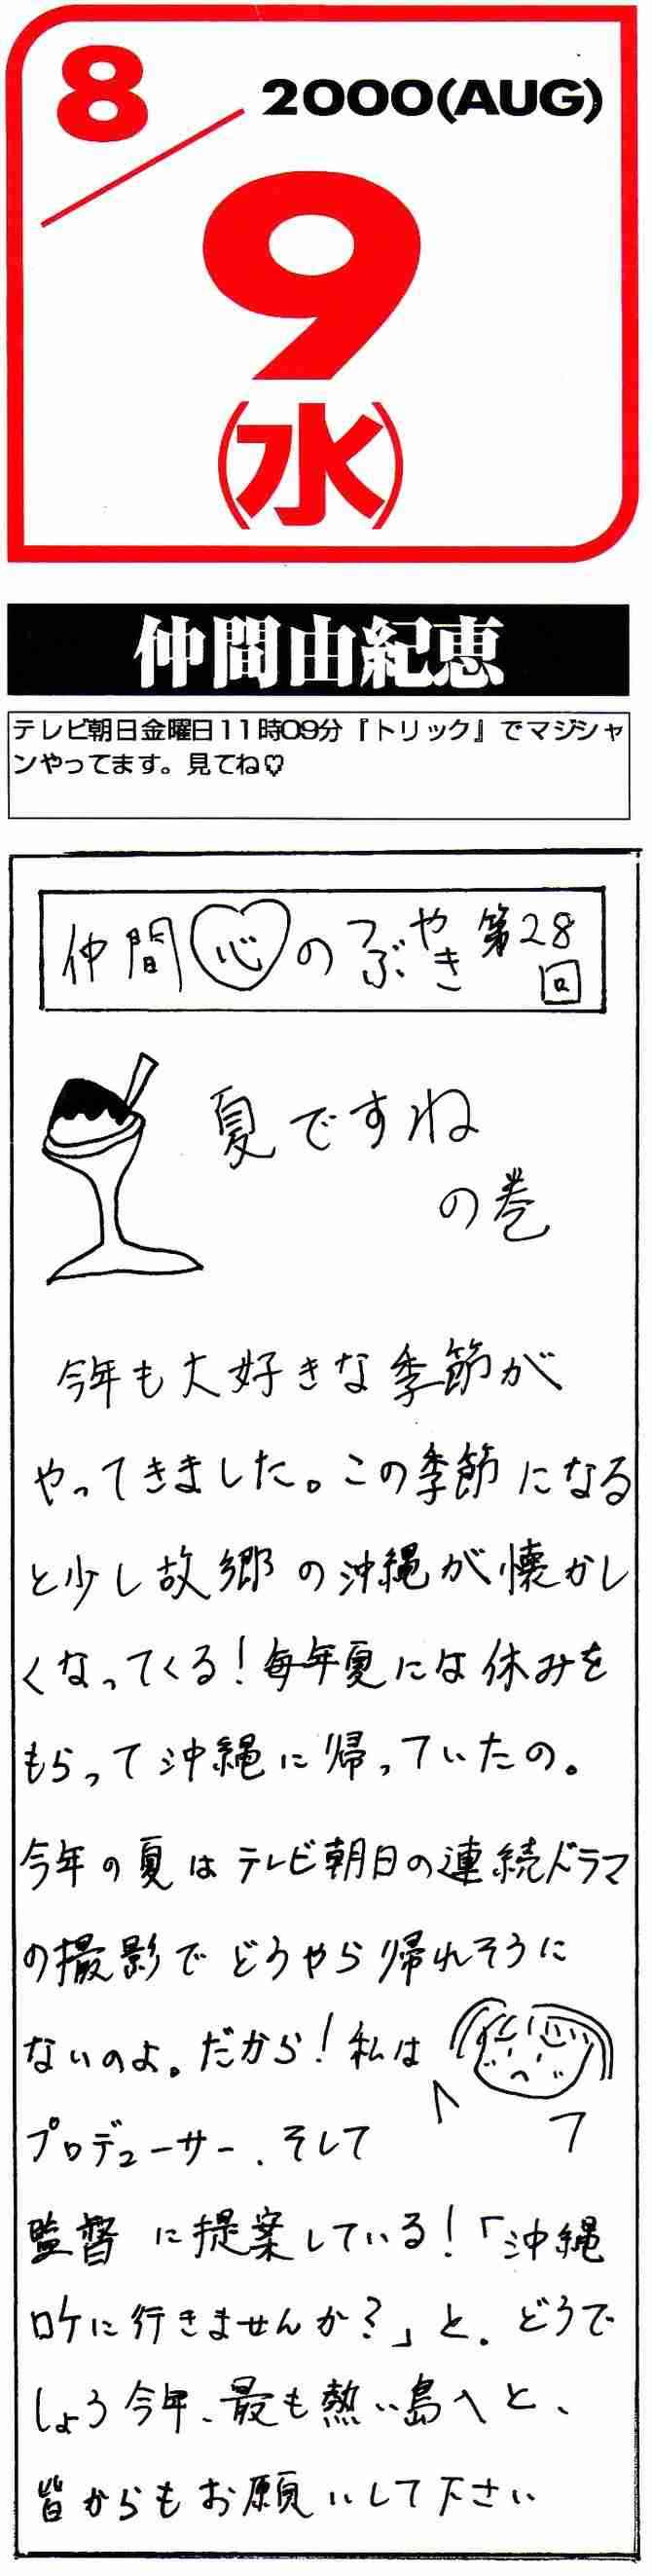 8
2000(AUG)
9
(水)
仲間由紀恵
テレビ朝日金曜日11時09分『トリック』でマジシャ
ンやってます。見てね♡
仲間心のつぶやき 第28回
夏ですね
の巻
今年も大好きな季節が
やってきました。この季節になる
と少し故郷の沖縄が懐かし
くなってくる!毎年夏には休みを
もらって沖縄に帰っていたの。
今年の夏はテレビ朝日の連続ドラマ
の撮影でどうやら帰れそうに
ないのよ。だから!私は
プロデューサー、そして
監督に提案している!「沖縄
ロケに行きませんか?」と。どうで
しょう今年、最も熱い島へと、
皆からもお願いして下さい